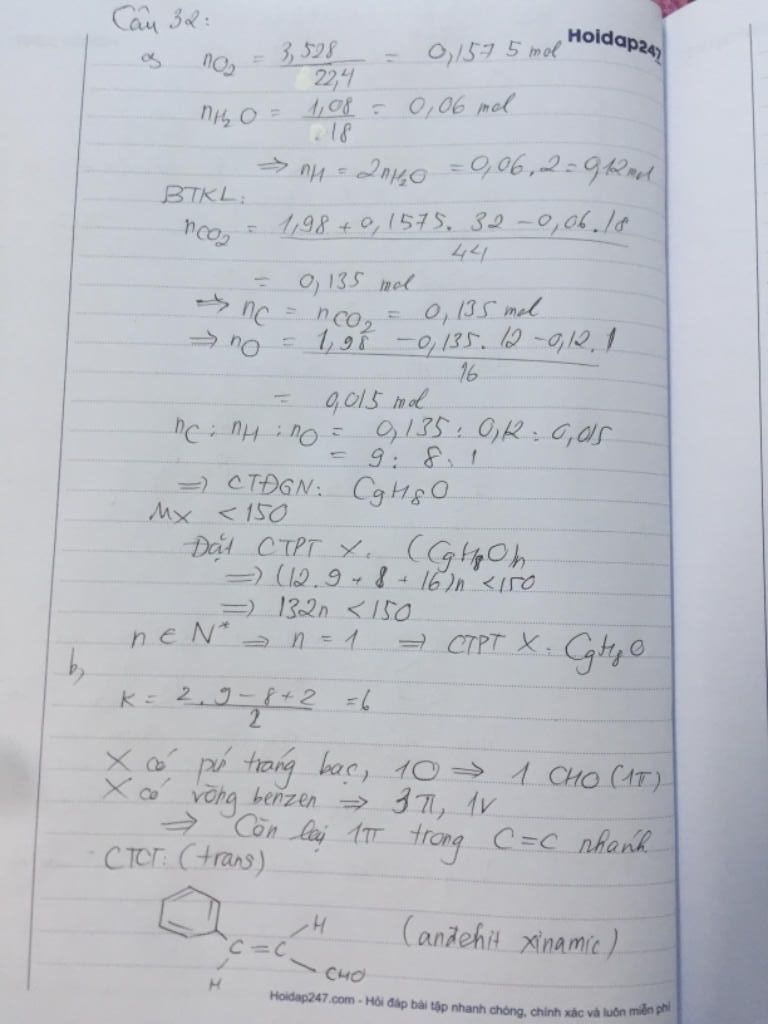 Câu 32:
Hoidap247
a, nO2 = 3,528 / 22,4 = 0,1575 mol
nH2O = 1,08 / 18 = 0,06 mol
=> nH = 2nH2O = 0,06.2 = 0,12 mol
BTKL:
nCO2 = 1,98 + 0,1575.32 - 0,06.18 / 44
= 0,135 mol
=> nC = nCO2 = 0,135 mol
=> nO = 1,98 - 0,135.12 - 0,12.1 / 16
= 0,015 mol
nC : nH : nO = 0,135 : 0,12 : 0,015
= 9 : 8 : 1
=> CTĐGN: C9H8O
Mx < 150
Đặt CTPT X: (C9H8O)n
=> (12.9 + 8 + 16)n < 150
=> 132n < 150
n ∈ N* => n = 1 => CTPT X: C9H8O
b,
K = 2.9 - 8 + 2 / 2 = 6
X có pứ tráng bạc, 1O => 1 CHO (1π)
X có vòng benzen => 3π, 1v
=> Còn lại 1π trong C=C nhánh
CTCT: (trans)
H
C = C
(anđehit xinamic)
H
CHO
Hoidap247.com - Hỏi đáp bài tập nhanh chóng, chính xác và luôn miễn phí